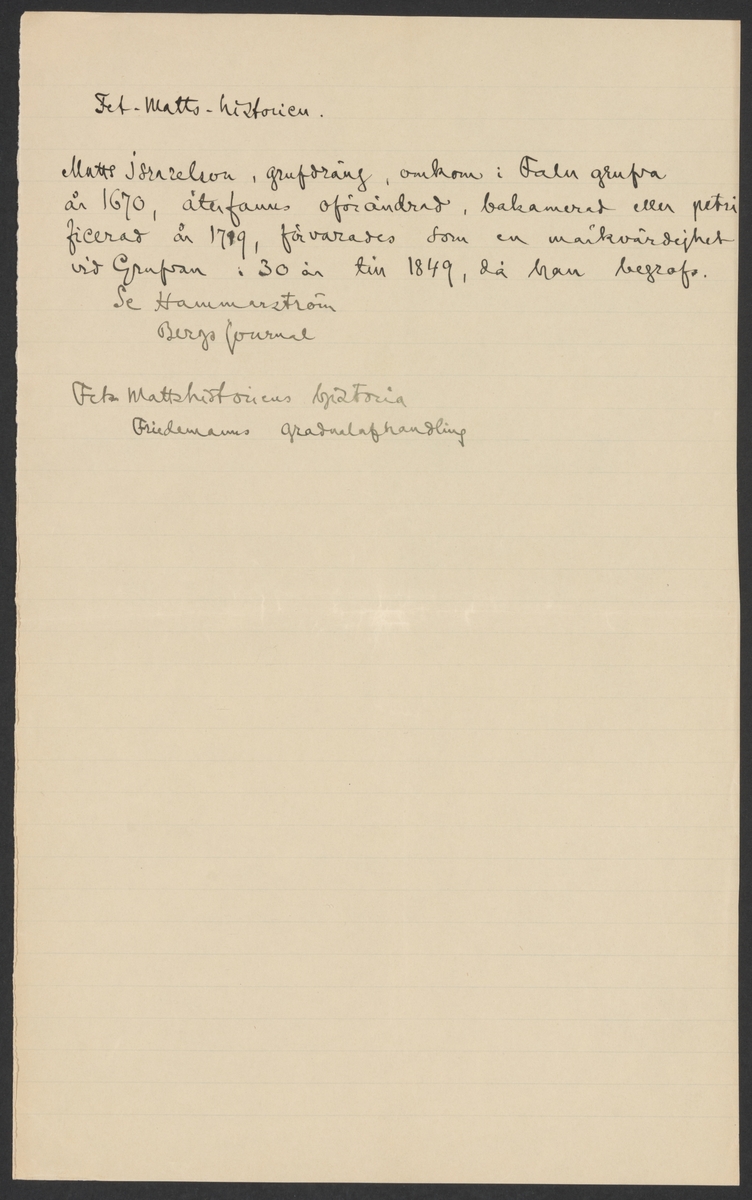 Fet-Matts-historien.
Matts Israelson, grufdräng, omkom i Falu grufva
år 1670, återfanns oförändrad, balsamerad eller petri
ficerad år 1719, förvarades som en märkvärdighet
vid Grufvan i 30 år till 1849, då han begrofs.
Se Hammarström
Bergs journal
Fet Mattshistoriens historia
Friedemanns gradualafhandling